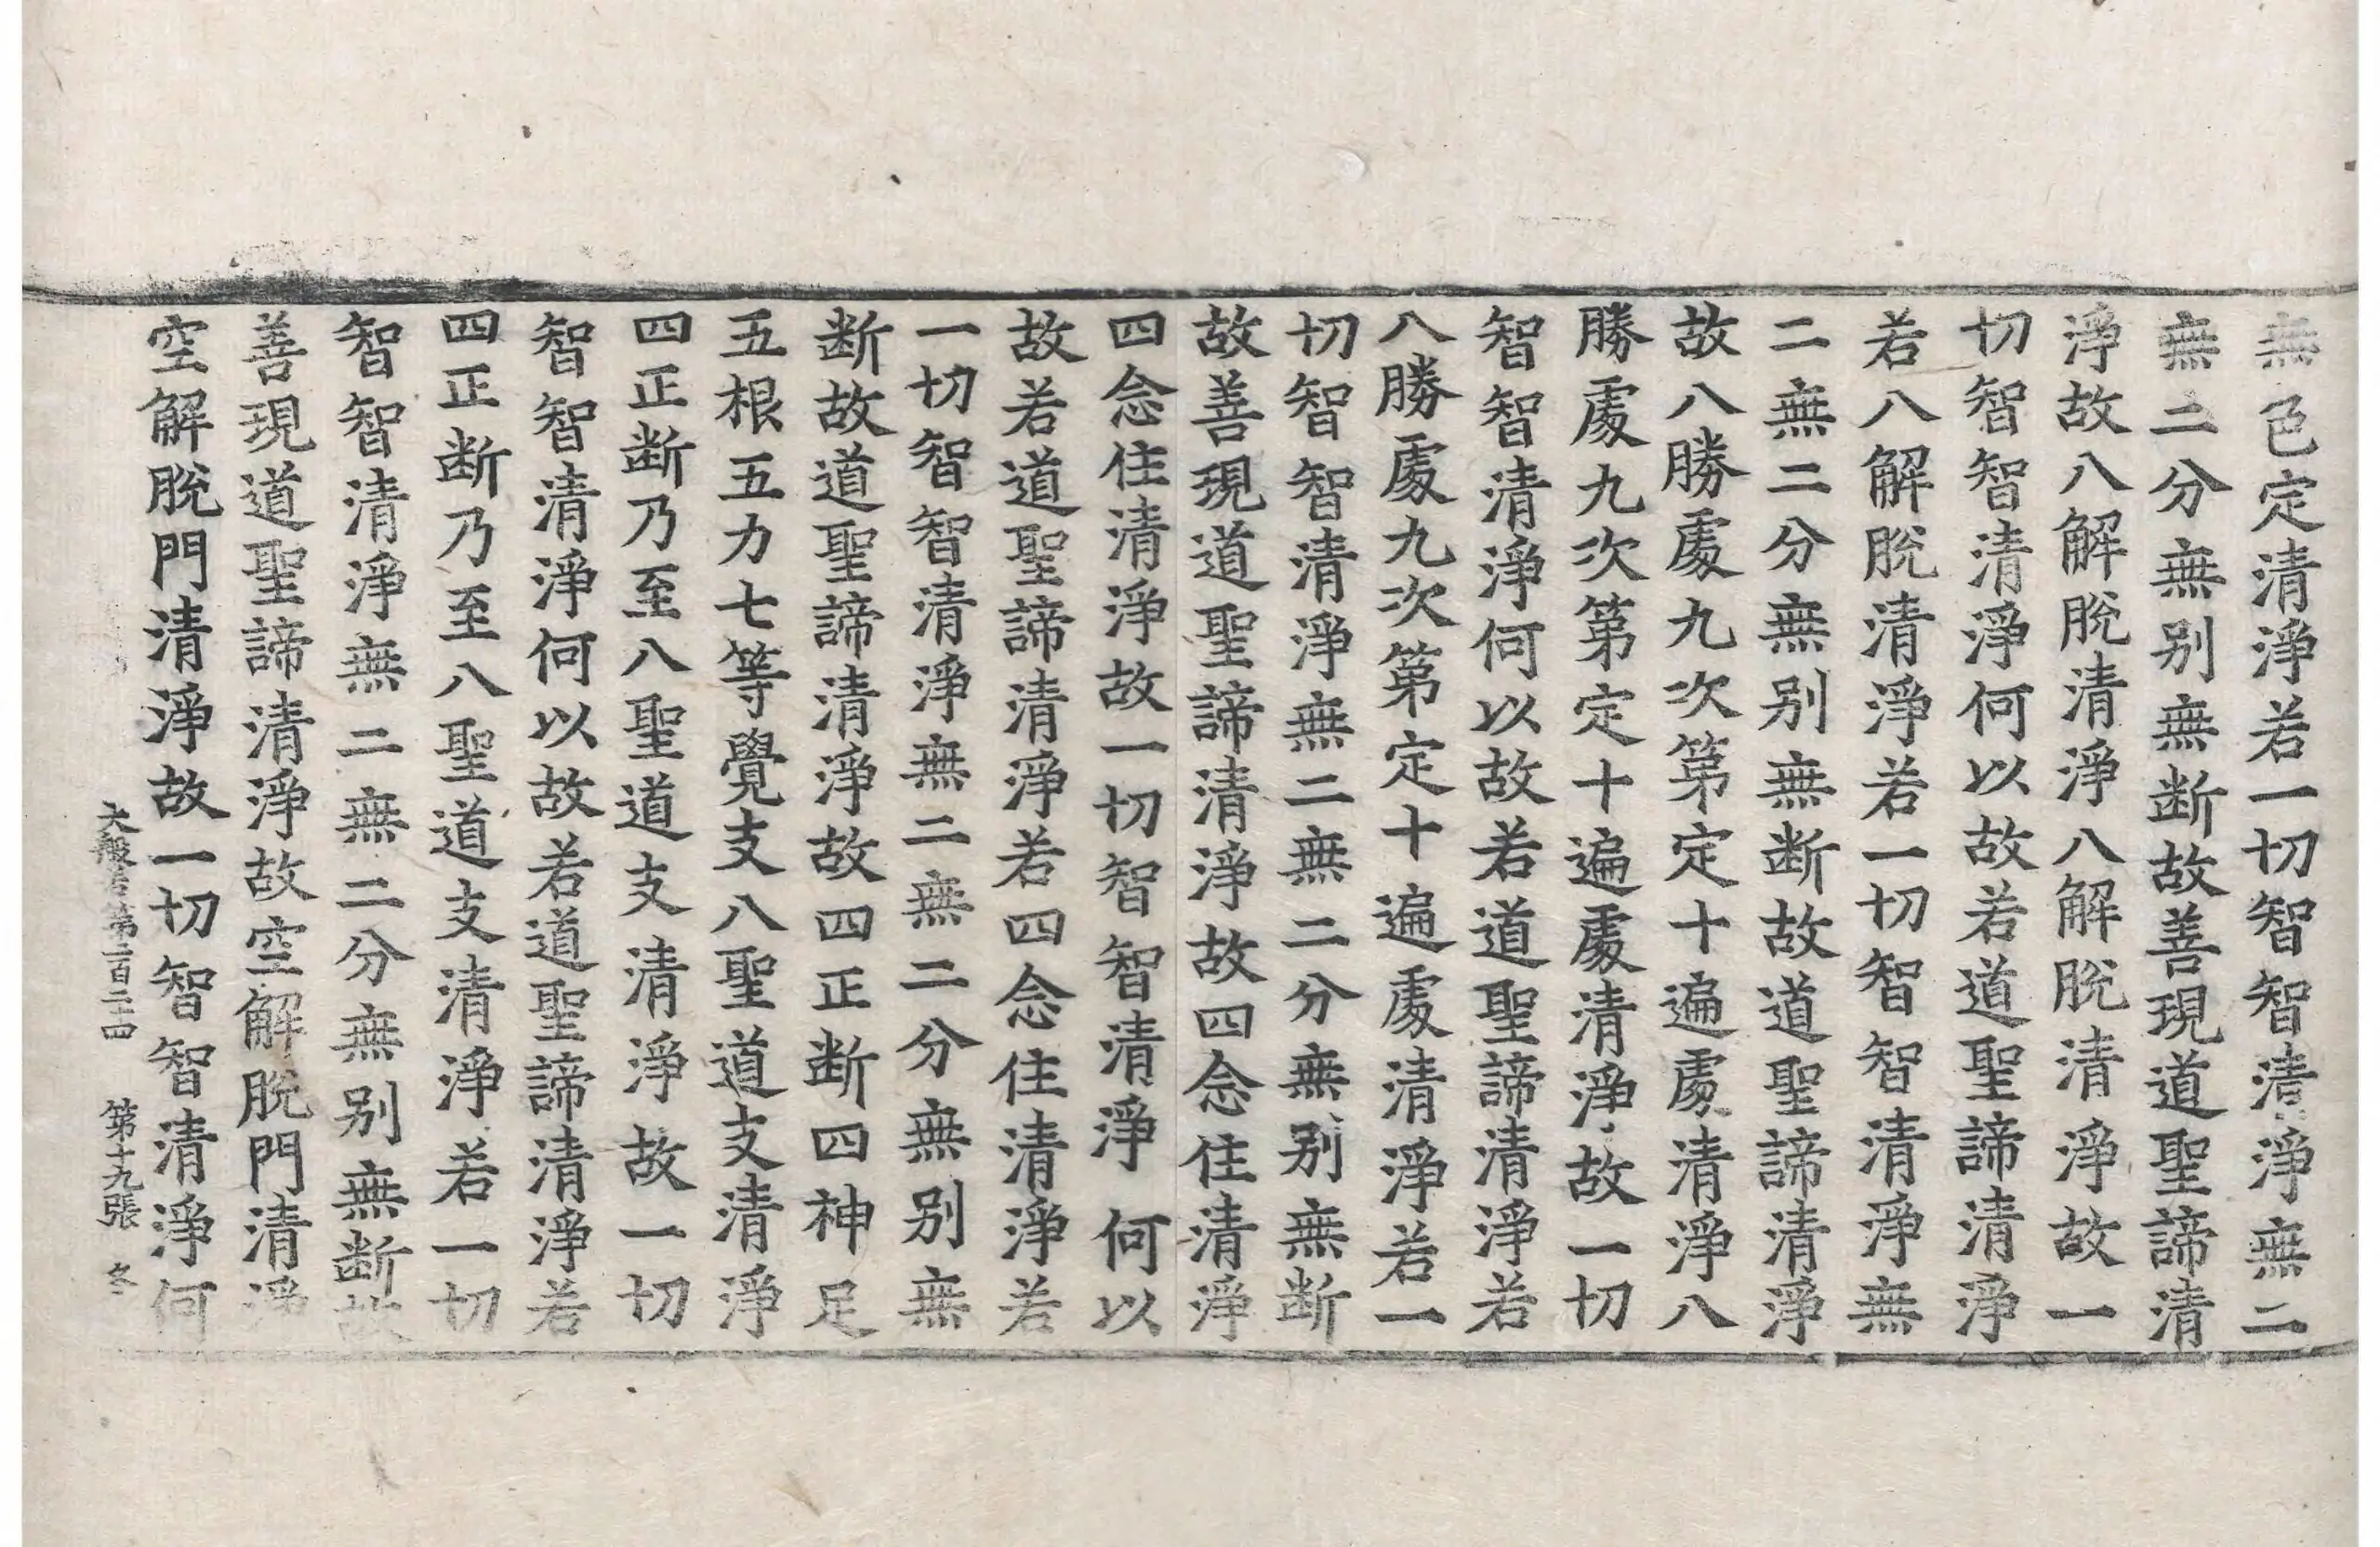 無色定清淨若一切智智清淨無二
無二分無别無断故善現道聖諦清
淨故八解脫清淨八解脫清淨故一
切智智清淨何以故若道聖諦清淨
若八解脫清淨若一切智智清淨無
二無二分無别無断故道聖諦清淨
故八勝處九次第定十遍處清淨八
勝處九次第定十遍處清淨故一切
智智清淨何以故若道聖諦清淨若
八勝處九次第定十遍處清淨若一
切智智清淨無二無二分無别無断
故善現道聖諦清淨故四念住清淨
四念住清淨故一切智智清淨何以
故若道聖諦清淨若四念住清淨若
一切智智清淨無二無二分無别無
断故道聖諦清淨故四正断四神足
五根五力七等覺支八聖道支清淨
四正断乃至八聖道支清淨故一切
智智清淨何以故若道聖諦清淨若
四正断乃至八聖道支清淨若一切
智智清淨無二無二分無别無断故
善現道聖諦清淨故空解脫門清淨
空解脫門清淨故一切智智清淨何
大般若第二百二十四 第十九張 冬